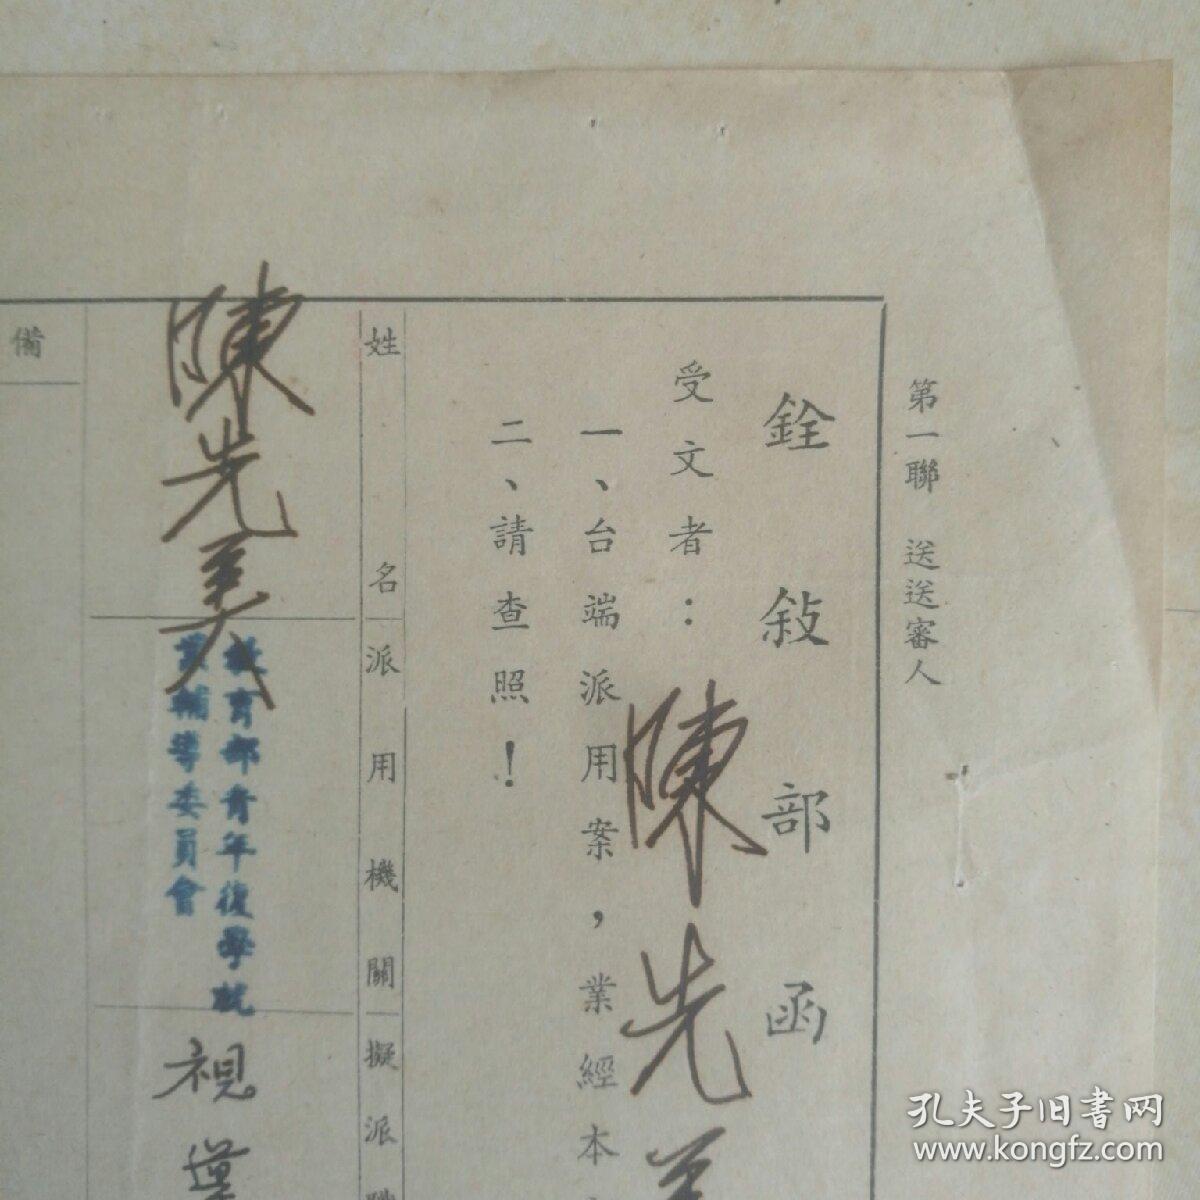 第一聯 送送審人
銓敍部函
受文者：陳先美
一、台端派用案，業經本
二、請查照！
姓名
派用機關
擬派職
陳先美
教育部青年復學就
業輔導委員會
視導
備
孔夫子旧書网
www.kongfz.com